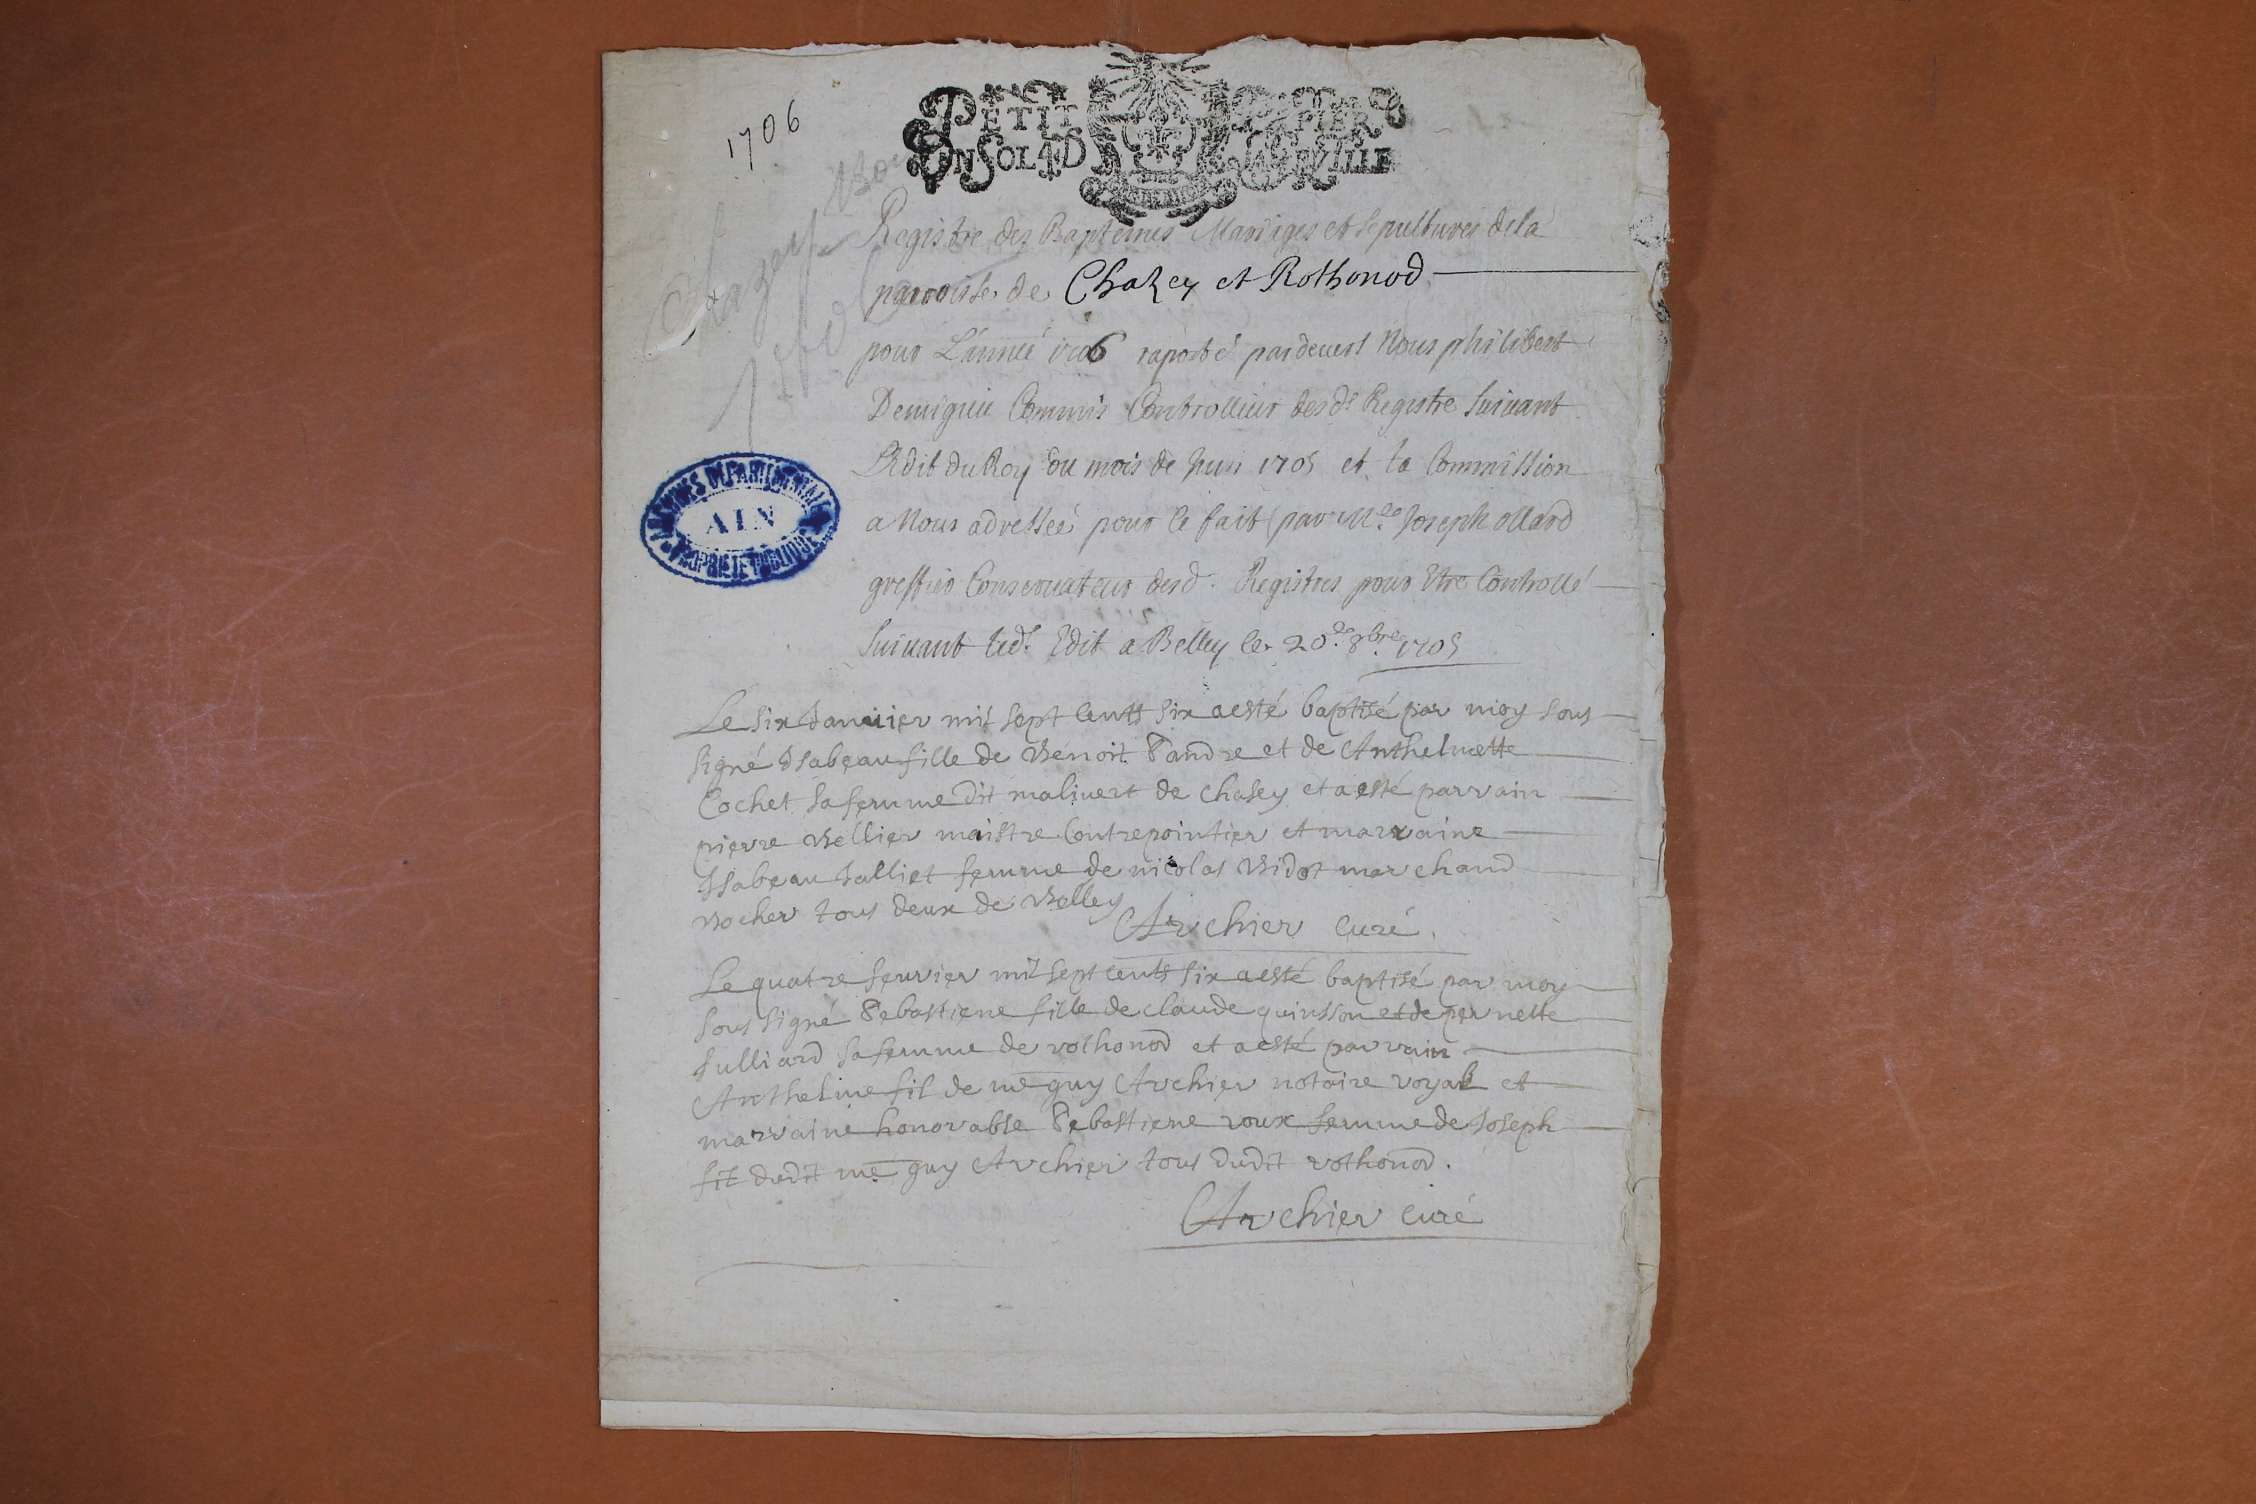 1706
PETIT PAPIER
UN SOL LA FEUILLE
Registre des Baptemes Mariages et sepultures de la
parroisse de Chazey et Rothonod
pour L'année 1706 raporté pardevers Nous philibert
Commis Controlleur desd. Registre suivant
L'Edit du Roy du mois de Juin 1705 et la Commission
a Nous adressée pour le fait par Me Joseph ollard
greffier Conservateur desd. Registres pour Etre Controllé
suivant led. Edit a Belley le 20e 8bre 1705
ARCHIVES DEPARTEMENTALES
AIN
PROPRIETE PUBLIQUE
Le six Januier mil sept cents six a esté baptisé par moy sous
signé Isabeau fille de Benoit Tandre et de Anthelmette
Cochet sa femme dit malivert de chasey et a esté parrain
pierre Bellier maistre Contrepointier et marraine
Isabeau Jalliet femme de nicolas Bidot marchand
Bocher tous deux de Belley
Archier curé.
Le quatre feuvier mil sept cents six a esté baptisé par moy
sous signé Sebastiene fille de claude quinsson et de pernette
Julliard sa femme de rothonod et a esté parrain
Anthelme fil de me guy Archier notaire royal et
marraine honorable Sebastiene roux femme de Joseph
fil dudit me guy Archier tous dudit rothonod.
Archier curé